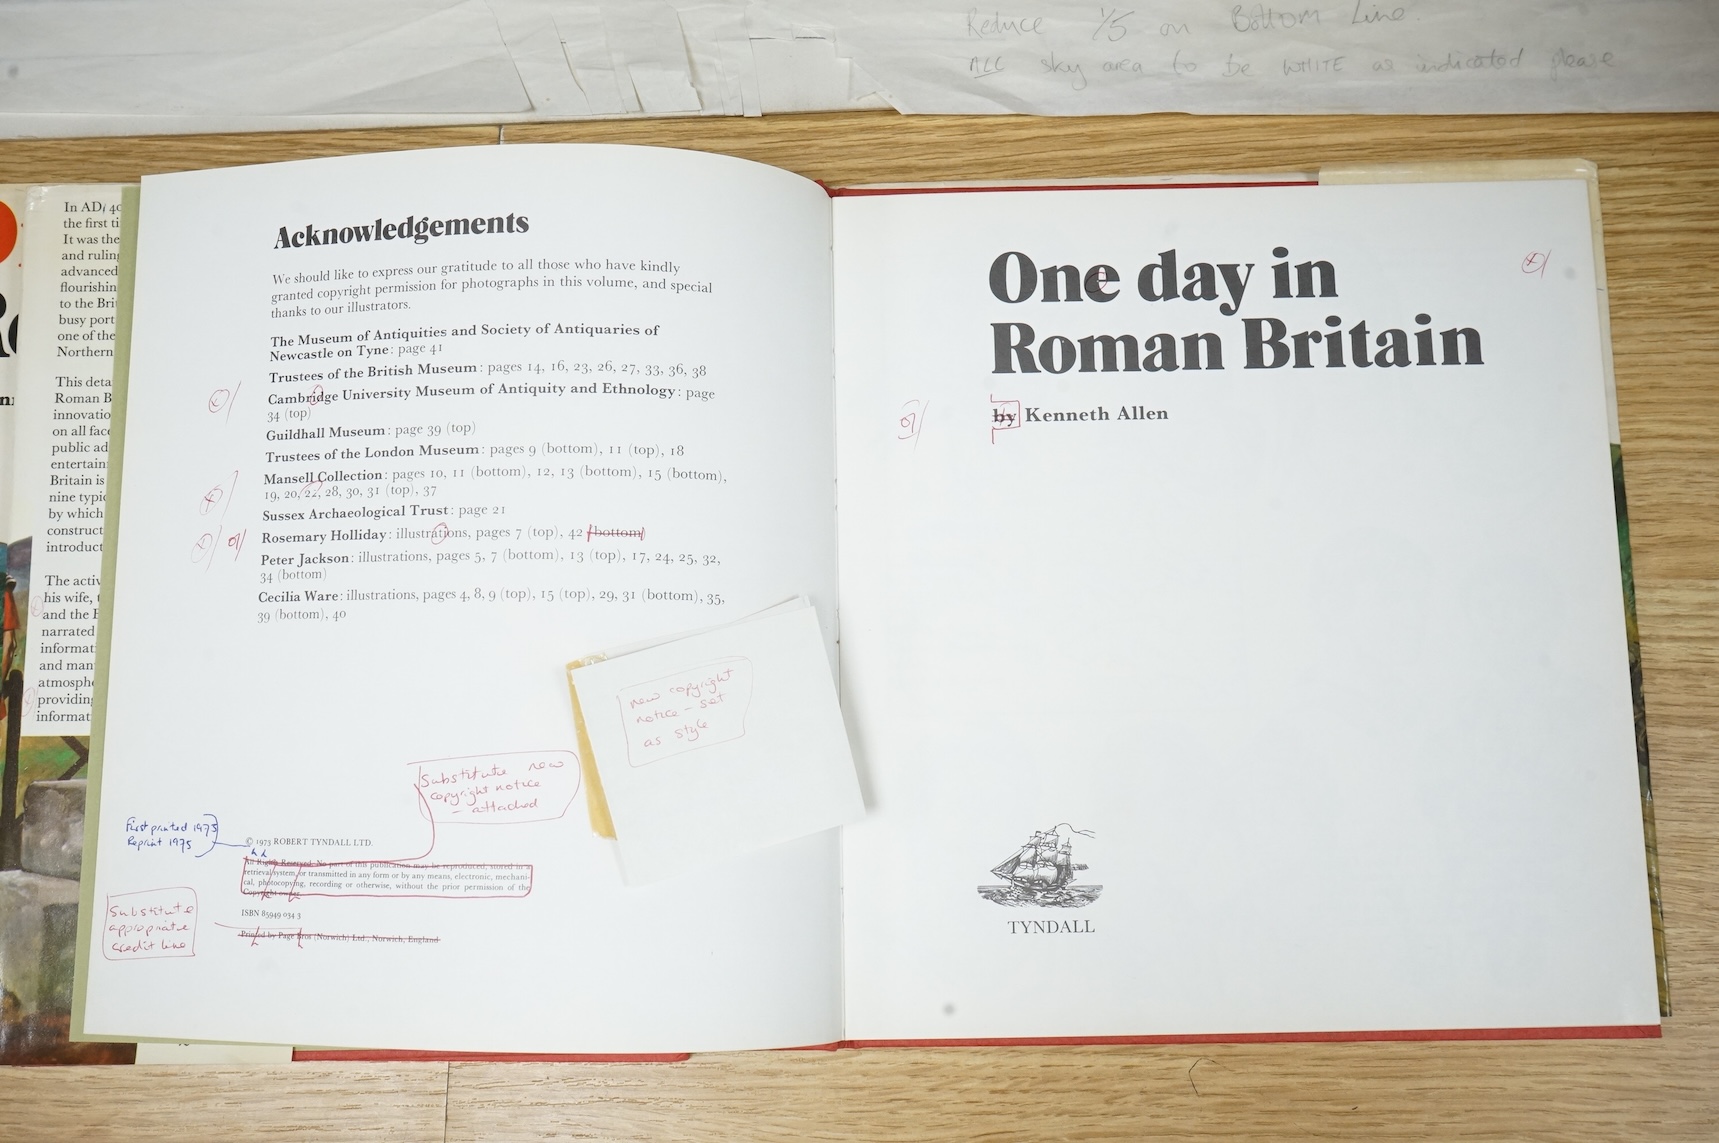 Reduce 1/5 on Bottom Line.
ALL sky area to be WHITE as indicated please
In AD 40
the first ti
It was the
and ruling
advanced
flourishin
to the Bri
busy port
one of the
Northern
This deta
Roman B
innovatio
on all face
public ad
entertain
Britain is
nine typic
by which
construct
introduct
The activ
his wife,
and the F
narrated
informati
and man
atmosph
providing
informat
Acknowledgements
We should like to express our gratitude to all those who have kindly
granted copyright permission for photographs in this volume, and special
thanks to our illustrators.
The Museum of Antiquities and Society of Antiquaries of
Newcastle on Tyne: page 41
Trustees of the British Museum: pages 14, 16, 23, 26, 27, 33, 36, 38
Cambridge University Museum of Antiquity and Ethnology: page
34 (top)
Guildhall Museum: page 39 (top)
Trustees of the London Museum: pages 9 (bottom), 11 (top), 18
Mansell Collection: pages 10, 11 (bottom), 12, 13 (bottom), 15 (bottom),
19, 20, 22, 28, 30, 31 (top), 37
Sussex Archaeological Trust: page 21
Rosemary Holliday: illustrations, pages 7 (top), 42 (bottom)
Peter Jackson: illustrations, pages 5, 7 (bottom), 13 (top), 17, 24, 25, 32,
34 (bottom)
Cecilia Ware: illustrations, pages 4, 8, 9 (top), 15 (top), 29, 31 (bottom), 35,
39 (bottom), 40
new copyright
notice - set
as style
Substitute new
copyright notice
- attached
First printed 1973
Reprint 1975
© 1973 ROBERT TYNDALL LTD.
All Rights Reserved. No part of this publication may be reproduced, stored in a
retrieval system, or transmitted in any form or by any means, electronic, mechani-
cal, photocopying, recording or otherwise, without the prior permission of the
Copyright owner
ISBN 85949 034 3
Substitute
appropriate
credit line
Printed by Page Bros (Norwich) Ltd., Norwich, England
One day in
Roman Britain
by Kenneth Allen
TYNDALL